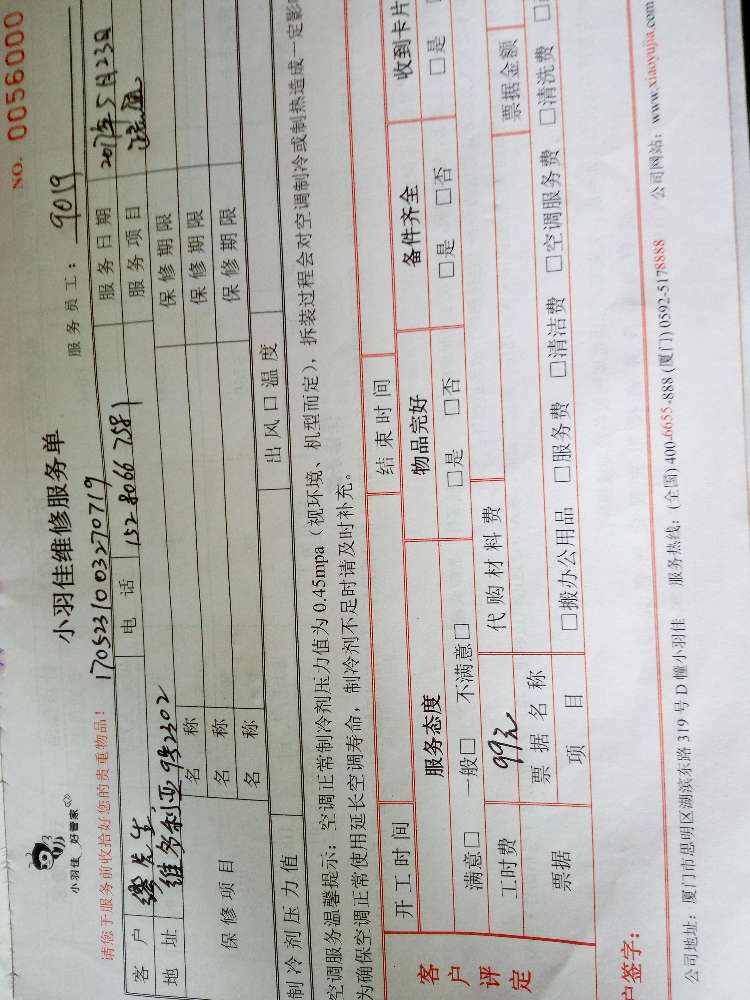 NO. 0056000
小羽佳 好管家
小羽佳维修服务单
服务员工： 9019
请您于服务前收拾好您的贵重物品！ 170523100 3270719
客户 先生 电话 152 8066 7581 服务日期 2017年5月23日
地址 维多利亚 2302 服务项目
保修项目 名称 保修期限
名称 保修期限
名称 保修期限
制冷剂压力值 出风口温度
空调服务温馨提示：空调正常制冷剂压力值为 0.45mpa（视环境、机型而定），拆装过程会对空调制冷或制热造成一定影
为确保空调正常使用延长空调寿命，制冷剂不足时请及时补充。
客户评定 开工时间 结束时间
服务态度 物品完好 备件齐全 收到卡片
满意□ 一般□ 不满意□ □是 □否 □是 □否 □是
工时费 99元 代购材料费
票据 票据名称 票据金额
项目 □搬办公用品 □服务费 □清洁费 □空调服务费 □清洗费
户签字：
公司地址：厦门市思明区湖滨东路 319 号 D 幢小羽佳 服务热线：(全国) 400-6655-888 (厦门) 0592-5178888 公司网站：www.xiaoyujia.com